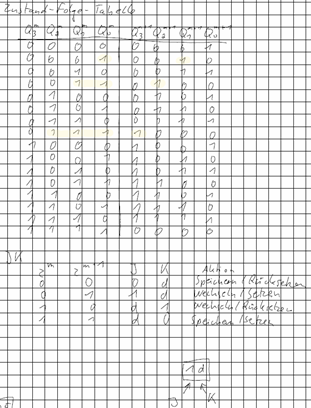 Zustand-Folge-Tabelle
Q₃ᵐ Q₂ᵐ Q₁ᵐ Q₀ᵐ Q₃ᵐ⁺¹ Q₂ᵐ⁺¹ Q₁ᵐ⁺¹ Q₀ᵐ⁺¹
0 0 0 0 0 0 0 1
0 0 0 1 0 0 1 0
0 0 1 0 0 0 1 1
0 0 1 1 0 1 0 0
0 1 0 0 0 1 0 1
0 1 0 1 0 1 1 0
0 1 1 0 0 1 1 1
0 1 1 1 1 0 0 0
1 0 0 0 1 0 0 1
1 0 0 1 1 0 1 0
1 0 1 0 1 0 1 1
1 0 1 1 1 1 0 0
1 1 0 0 1 1 0 1
1 1 0 1 1 1 1 0
1 1 1 0 1 1 1 1
1 1 1 1 0 0 0 0
JK
J K Aktion
0 0 0 d Speichern/Rücksetzen
0 1 1 d Wechseln/Setzen
1 0 d 1 Wechseln/Rücksetzen
1 1 d 0 Speichern/Setzen
1 d
J K